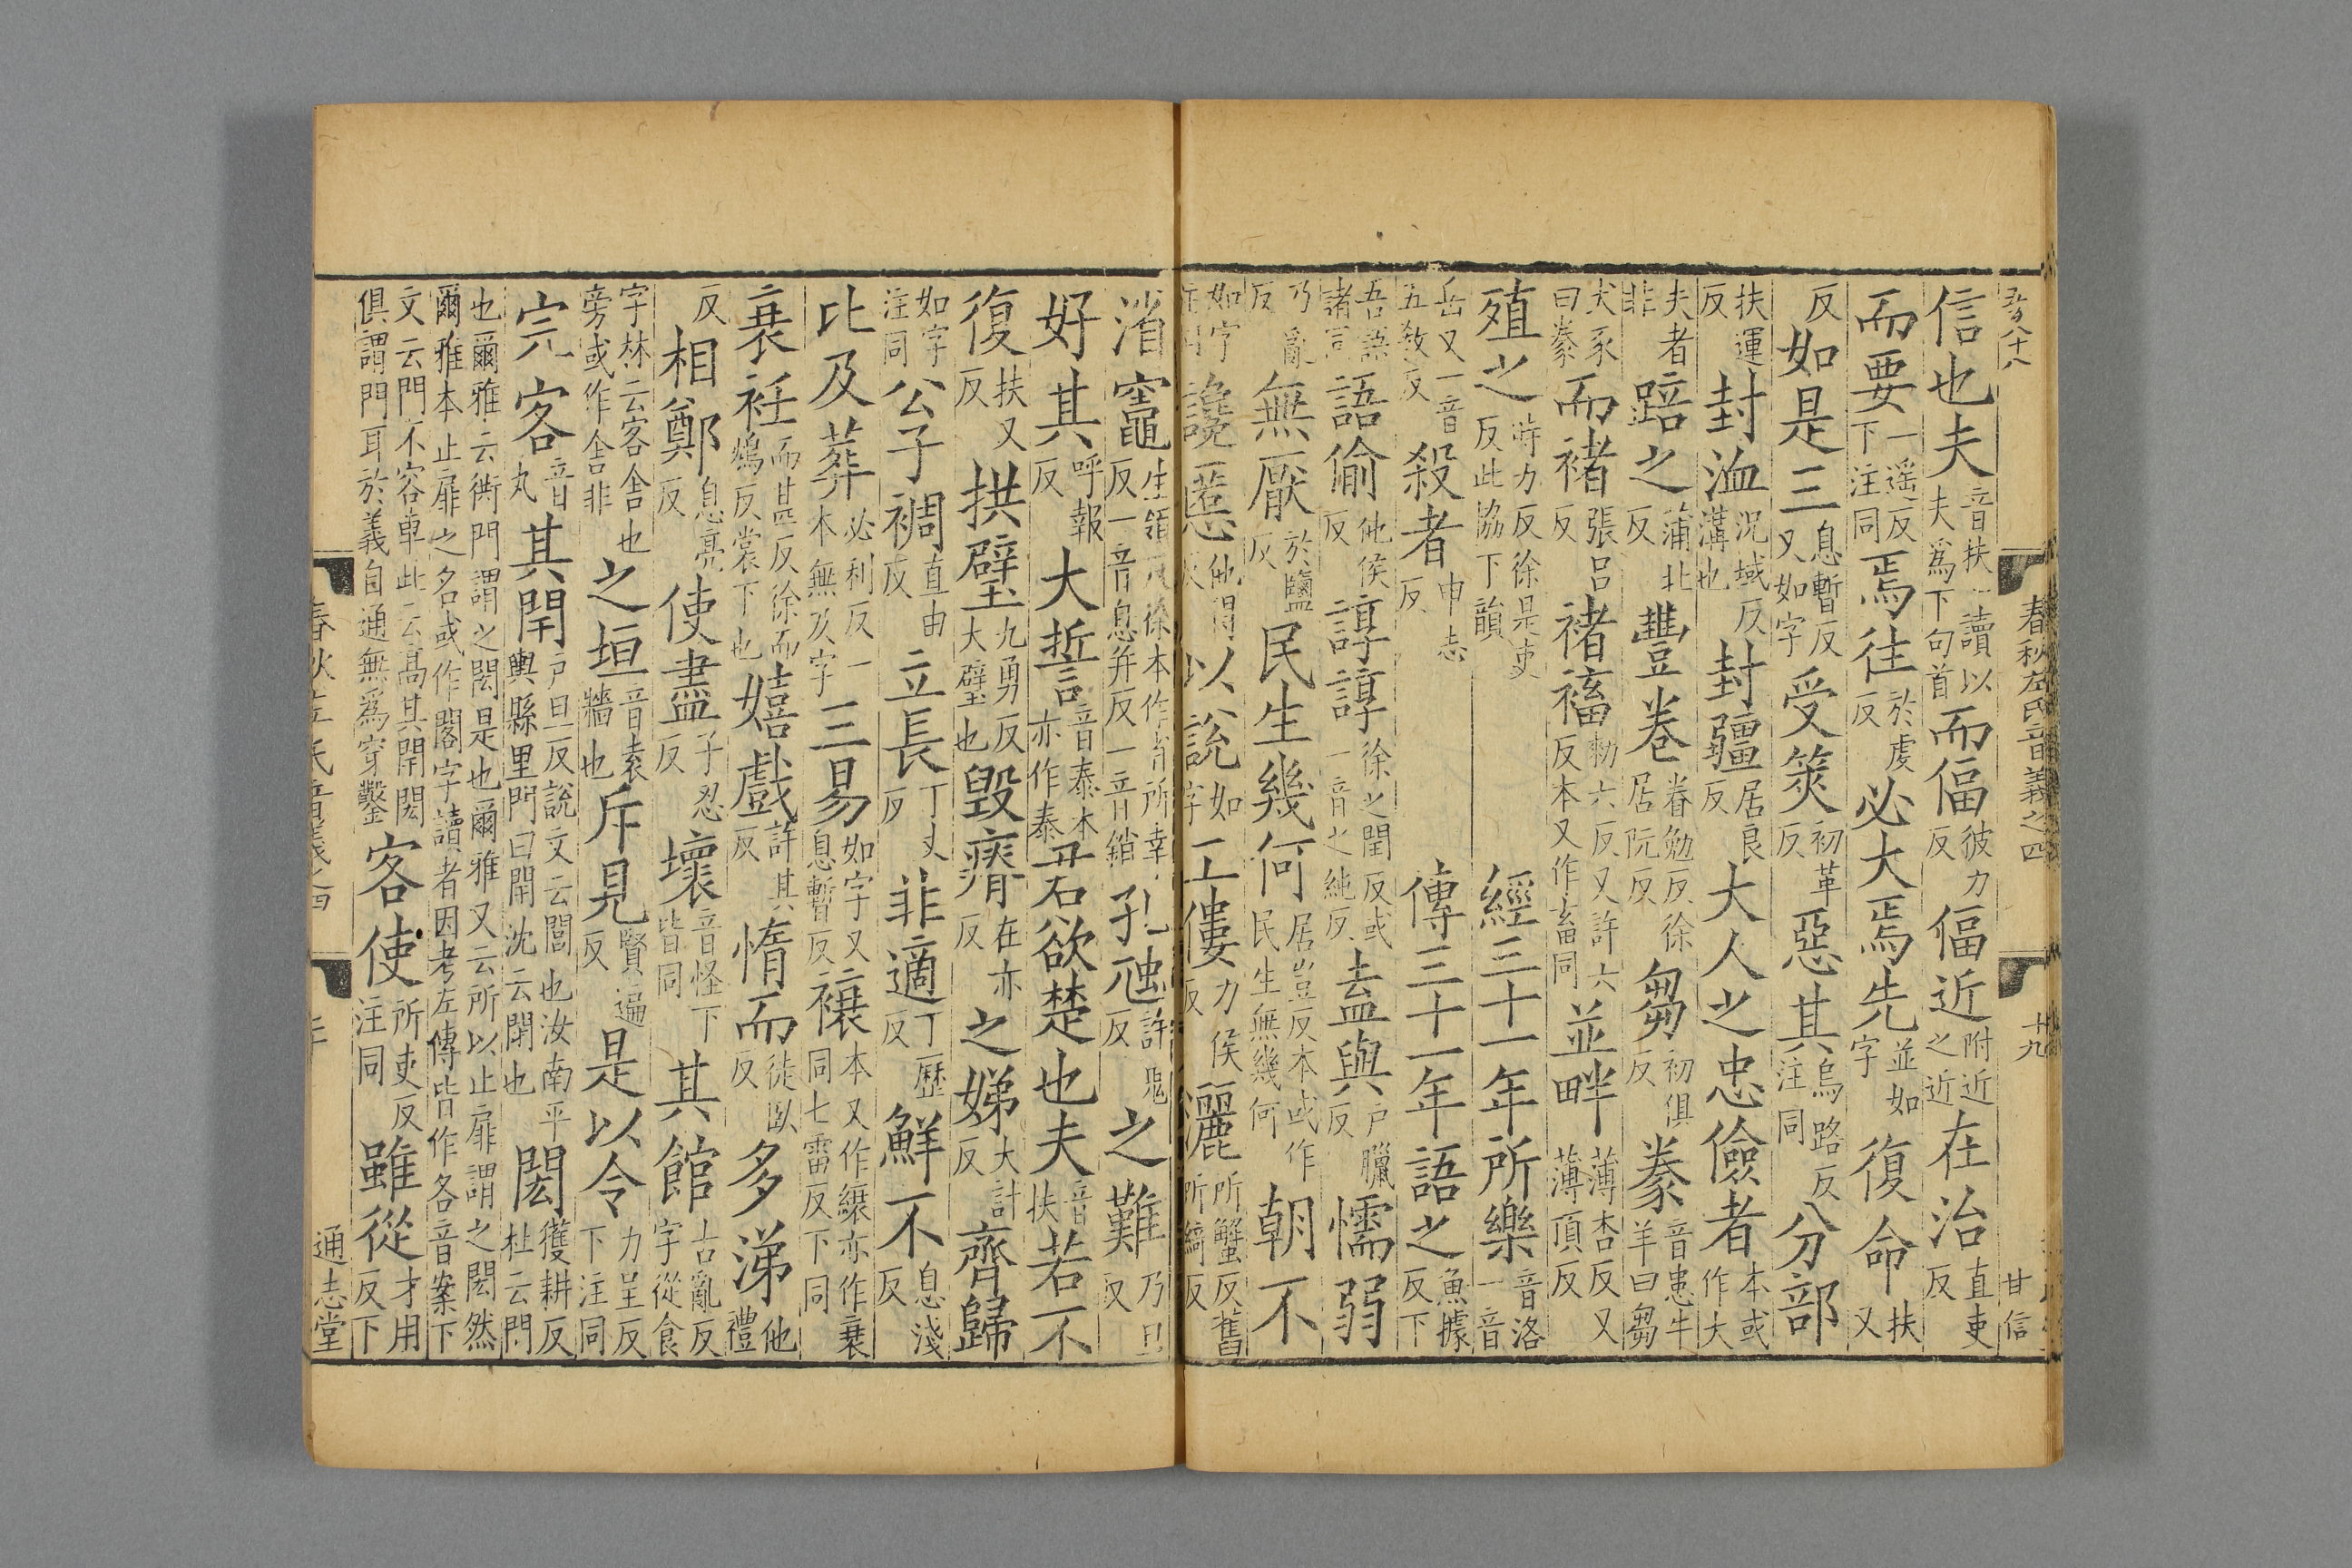 春秋左氏音義之四
廿九
甘信
信也夫音扶一讀以夫爲下句首而偪彼力反偪近附近之近在治直吏反
而要一遥反下注同焉往於虔反必大焉先並如字復命扶又
反如是三息暫反又如字受筴初革反惡其烏路反注同分部
扶運反封洫況域反溝也封疆居良反大人之忠儉者本或作大
夫者非踣之蒲北反豐卷眷勉反徐居阮反芻初俱反豢音患牛羊曰芻
犬豕曰豢而褚張呂反褚䘏勑六反又許六反本又作畜同並畔薄杏反又薄頂反
殖之時力反徐是吏反此協下韻
經三十一年所樂音洛一音
岳又一音五敎反殺者申志反
傳三十一年語之魚據反下
吾語諸同語偷他侯反諄諄徐之閏反或一音之純反盍與戸臘反懦弱
乃亂反無厭於鹽反民生幾何居豈反本或作民生無幾何朝不
如字讒慝他得以說如字工僂力侯反灑所蟹反舊所綺反
渻竈生領反徐本作省所幸反一音息幷反一音銷孔虺許鬼反之難乃旦反
好其呼報反大誓音泰本亦作泰君欲楚也夫音扶若不
復扶又反拱璧九勇反大璧也毀瘠在亦反之娣大計反齊歸
如字注同公子裯直由反立長丁丈反非適丁歷反鮮不息淺反
比及葬必利反一本無及字三易如字又息暫反衰本又作縗亦作𧞓同七雷反下同
衰衽而甚反徐而鴆反裳下也嬉戲許其反惰而徒臥反多涕他禮
反相鄭息亮反使盡子忍反壞音怪下皆同其館古亂反字從食
字林云客舍也旁或作舍非之垣音袁牆也斥見賢遍反是以令力呈反下注同
完客音丸其閈戸旦反說文云閭也汝南平輿縣里門曰閈沈云閉也閎獲耕反杜云門
也爾雅云衖門謂之閎是也爾雅又云所以止扉謂之閎然爾雅本止扉之名或作閣字讀者因考左傳皆作各音案下
文云門不容車此云高其閈閎俱謂門耳於義自通無爲穿鑿客使所吏反注同雖從才用反下
通志堂